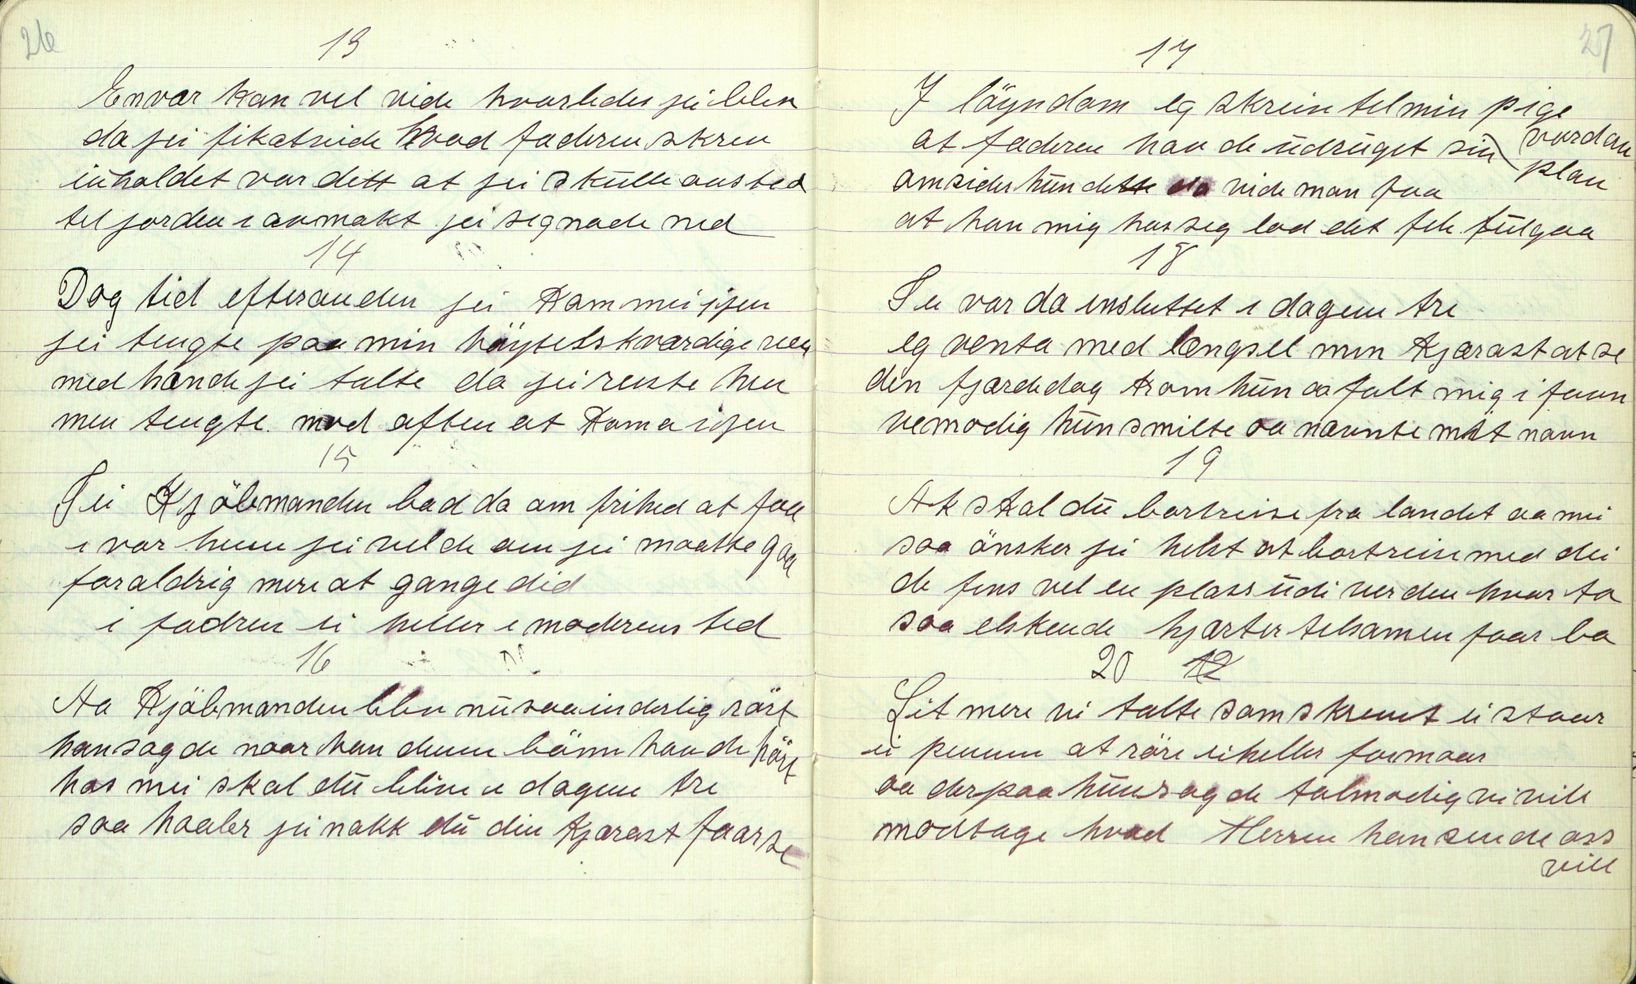 26
13
Envar kan vel vide hvorledes jei blev
da jei fikatvide hvad faderen skrev
inholdet var dett at jei skulle avsted
tel jorden i avmakt jei segnade ned
14
Dog tid efteranden jei kam mei ijen
jei tengte paa min höyselskværdige ven
med hande jei talte da jei reiste hen
men tengte mod aften at koma ijen
15
Til Kjöbmanden bad da om frihed at faa
i vor heim jei velde om jei maatte gaa
for aldrig mere at gange did
i fadren ei heller i moderens sted
16
Aa Kjöbmanden blev nu saa inderlig rört
han sagde naar han denne bönn havde hört
hos mei skal du blive i dagene tre
saa haaber jei nokk du din kjærast faar se
27
17
I löyndom eg skrein tel min pige
at faderen havde udruget sin vordan
plan
omsider hun dette da vide man faa
at han mig hos seg lod det fek tilgaa
18
Ien var da inslettet i dagene tre
eg venta med længsel min kjærast at se
den fjærde dag kom hun aa falt mig i favn
vemodig hun smilte aa nævnte mitt navn
19
Ak skal du bortreise fra landet aa mei
saa önsker jei helst at bortreise med dei
de fins vel en plass udi verden hvor to
saa elskende hjærter telsamen faar bo
20 12
Lit mere vi talte som skrevet ei staar
ei pennen at röre eiheller formaar
aa derpaa hun sagde talmodig vi vill
modtage hvad Herren han sende oss
vill